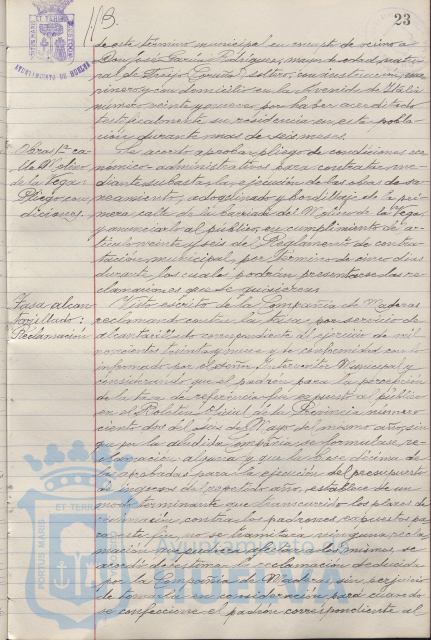 113.
23
PORTUS MARIS ET TERRAE CUSTODIA
AYUNTAMIENTO DE HUELVA
de este término municipal en concepto de vecino a
Don José García Rodríguez, mayor de edad, natu-
ral de soltero, con instrucción, ma-
rinero y con domicilio en la Avenida de Italia
número veinte y nueve, por haber acreditado
testificalmente su residencia en esta pobla-
ción durante mas de seis meses.
Obras 1ª ca-
lle Molino
de la Vega:
Pliego con-
diciones.
Se acordó aprobar pliego de condiciones eco-
nómico-administrativas para contratar me-
diante subasta, la ejecución de las obras de sa-
neamiento, adoquinado y bordillaje de la pri-
mera calle de la Barriada del Molino de la Vega,
y anunciarlo al público, en cumplimiento de ar-
tículo veinte y seis del Reglamento de contra-
tación municipal, por término de cinco días
durante los cuales podrán presentarse las re-
clamaciones que se quisieran
Tasa alcan-
tarillado:
Reclamación
Visto escrito de la Compañía de Maderas
reclamando contra la tasa, por servicio de
alcantarillado correspondiente al ejercicio de mil
novecientos treinta y nueve y de conformidad con lo
informado por el señor Interventor Municipal y
considerando que el padrón para la percepción
de la tasa de referencia fué expuesto al público
en el Boletín Oficial de la Provincia número
ciento dos del seis de Mayo del mismo año, sin
que por la aludida Compañía se formulase re-
clamación alguna y que la base décima de
las aprobadas para la ejecución del presupuesto
de ingresos del repetido año, establece de un
modo terminante que transcurrido los plazos de
reclamación, contra los padrones expuestos pa-
ra este fin, no se tramitará ninguna recla-
mación que pudiera afectar a los mismos, se
acordó desestimar la reclamación deducida
por la Compañía de Maderas, sin perjuicio
de tomarla en consideración para cuando
se confeccione el padrón correspondiente al
PORTUS MARIS ET TERRAE
Ayuntamiento de